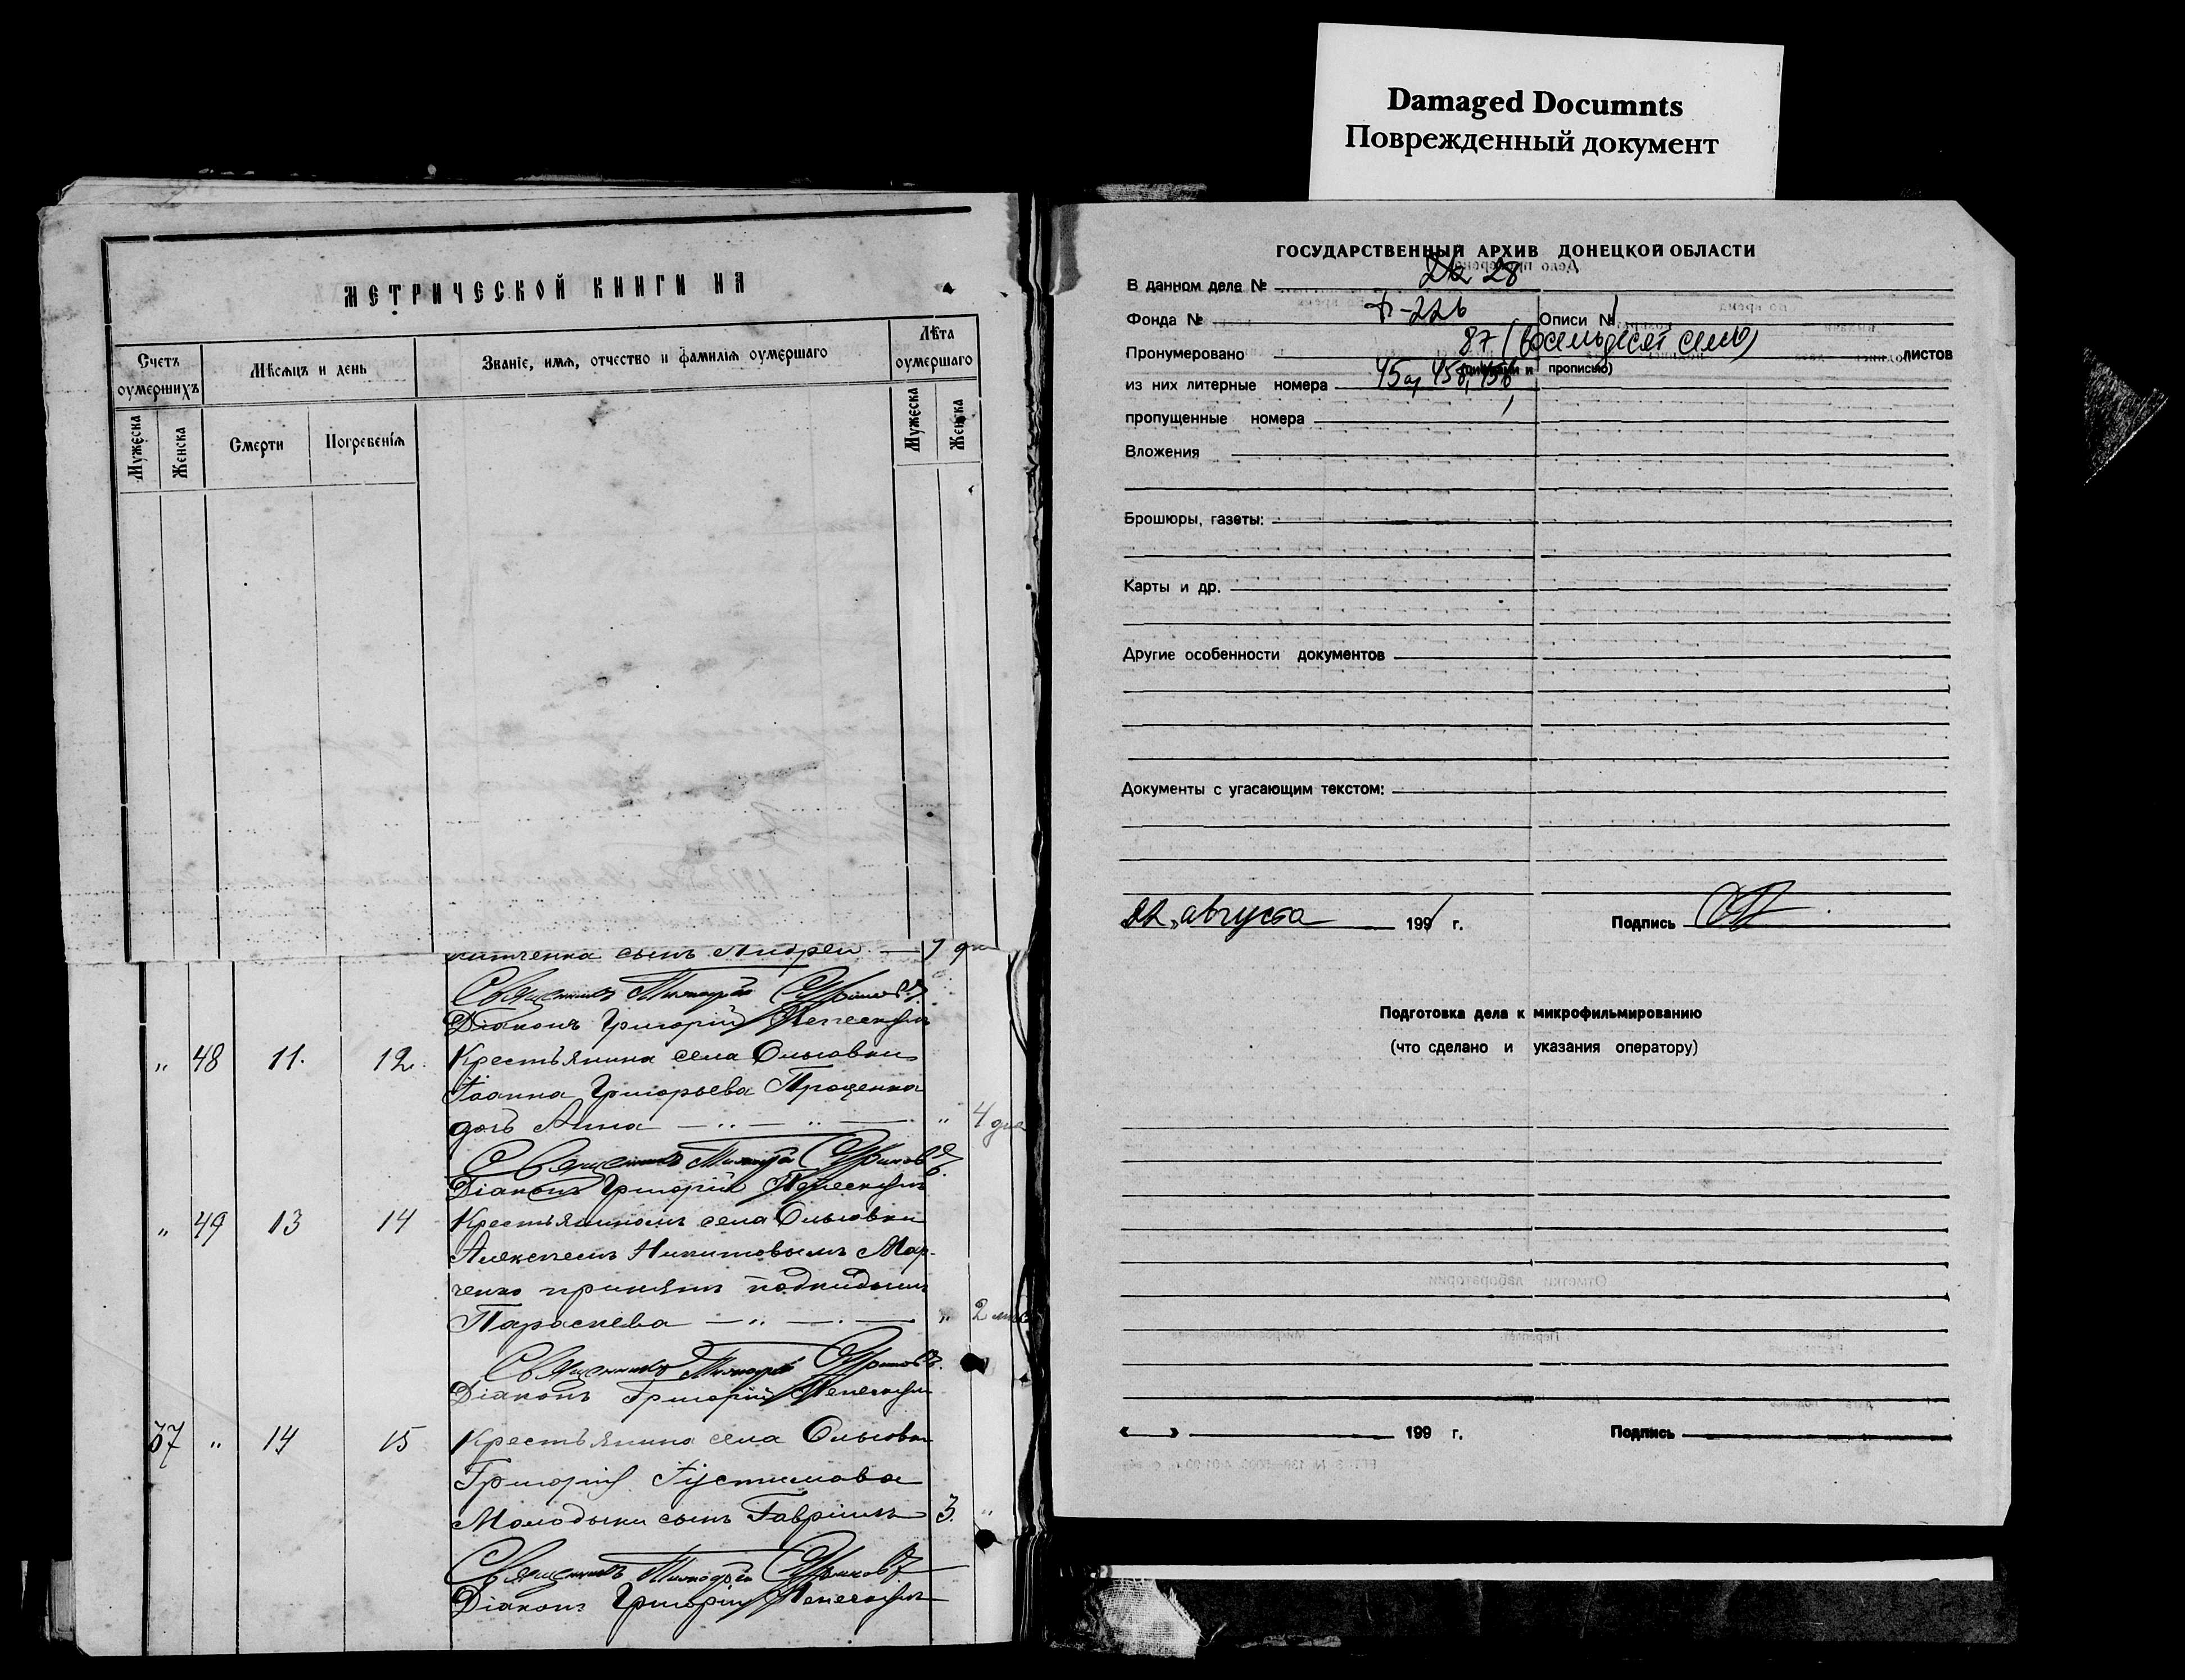 Damaged Documnts
Поврежденный документ
МЕТРИЧЕСКОЙ КНИГИ НА
Счетъ оумершихъ
Мѣсяцъ и день
Званіе, имя, отчество и фамилія оумершаго
Лѣта оумершаго
Мужеска
Женска
Смерти
Погребенія
Мужеска
Женска
сынъ Андрей — 7 дн
Священникъ
Діаконъ Григорій
" 48 11. 12. Крестьянина села Ольговки
Іоанна Григорьева Проценка
дочь Анна — " — " — " 4 дня
Священникъ
Діаконъ Григорій
" 49 13 14 Крестьяниномъ села Ольговки
Алексѣемъ Никитовымъ Мар-
ченко принятъ подкидышъ
Параскева — " — " 2 мѣс
Священникъ
Діаконъ Григорій
37 " 14 15 Крестьянина села Ольговки
Григорія Іустимова
Молодыки сынъ Гавріилъ 3. "
Священникъ
Діаконъ Григорій
ГОСУДАРСТВЕННЫЙ АРХИВ ДОНЕЦКОЙ ОБЛАСТИ
В данном деле № 28
Фонда № Ф-226 Описи № 1
Пронумеровано 87 (восемьдесят семь) листов
прописью)
из них литерные номера 45а, 45б, 45в
пропущенные номера
Вложения
Брошюры, газеты:
Карты и др.
Другие особенности документов
Документы с угасающим текстом:
22 " августа 1991 г. Подпись
Подготовка дела к микрофильмированию
(что сделано и указания оператору)
« » 199 г. Подпись